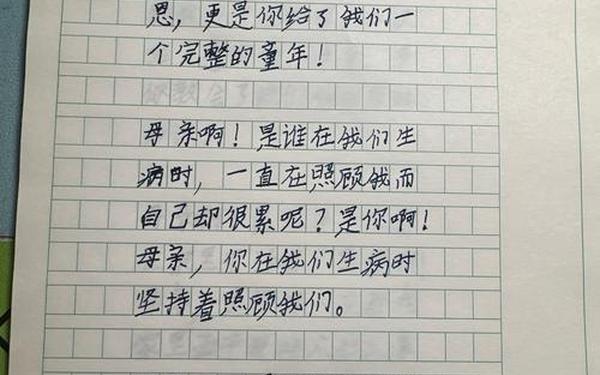 恩，更是你给了我们一
个完整的童年！
母亲啊！是谁在我们生
病时，一直在照顾我而
自己却很累呢？是你啊！
母亲，你在我们生病时
坚持着照顾我们。